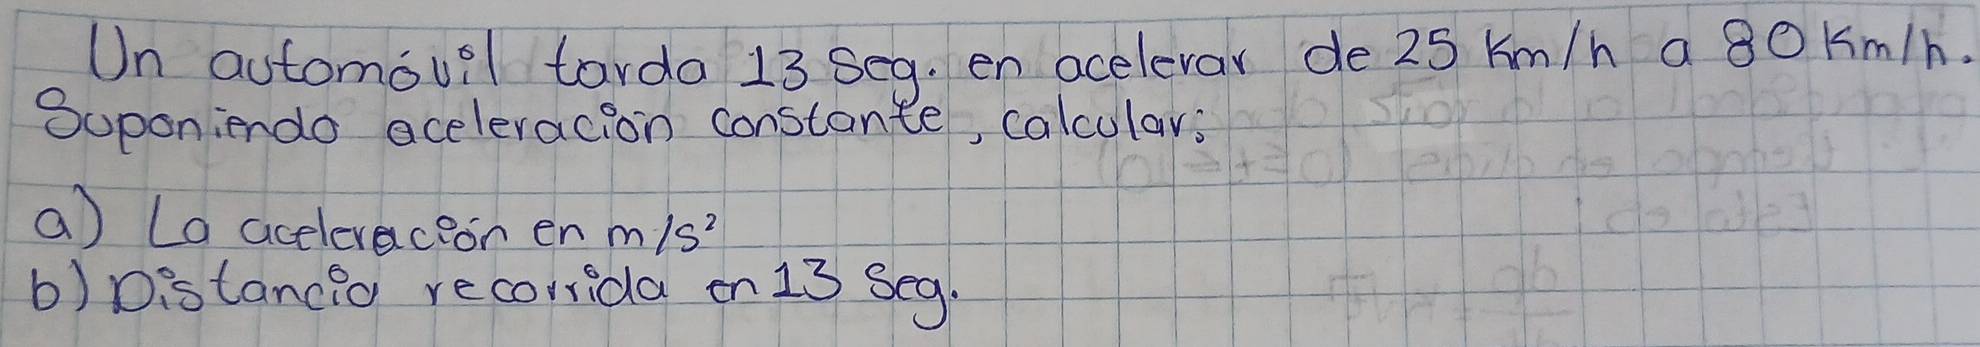 Un automóvil tarda 13 Seg. en acelerar de 25 Km/h a 80 Km/h.
Suponiendo aceleración constante, calcular:
a) La aceleración en m/s²
b) Distancia recorrida en 13 Seg.